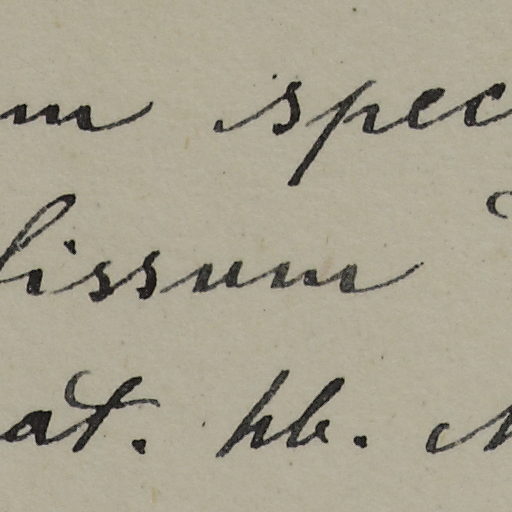 m spec
lissum
at. hb.